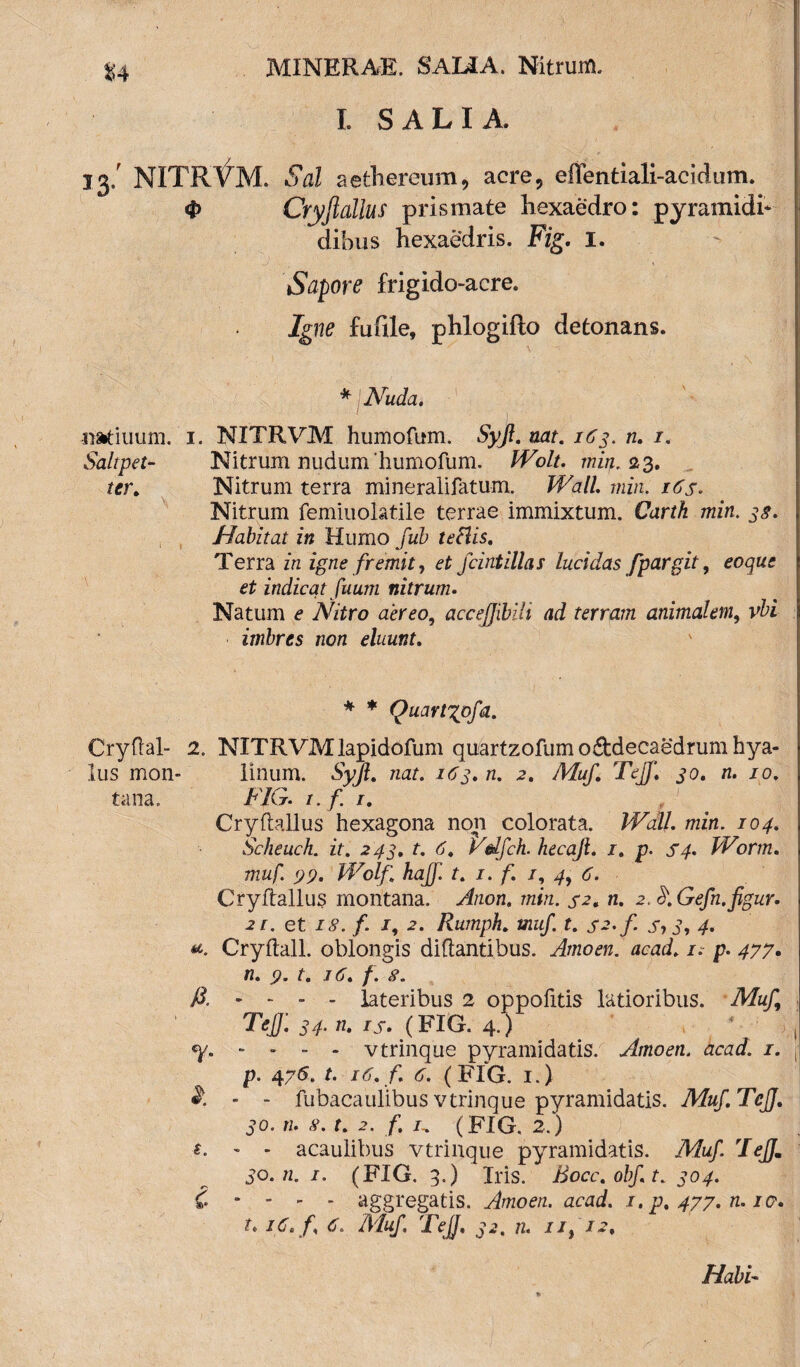 84 MINERAE. SALIA. Nitrum.
I. SALIA.
13. NITRVM. Sal aethereum, acre, eſſentiali-acidum.
Φ Cryſtallus prismate hexaëdro: pyramidi-
dibus hexaëdris. Fig. 1.
Sapore frigido-acre.
Igne fuſile, phlogiſto detonans.
* Nuda.
natiuum. 1. NITRVM humoſum. Syſt. nat. 163. n. 1.
Saltpet- Nitrum nudum humoſum. Wolt. min. 23.
ter. Nitrum terra mineraliſatum. Wall. min. 165.
Nitrum ſemiuolatile terrae immixtum. Carth min. 38.
Habitat in Humo ſub tectis.
Terra in igne fremit, et ſcintillas lucidas ſpargit, eoque
et indicat ſuum nitrum.
Natum e Nitro aëreo, acceſſibili ad terram animalem, vbi
imbres non eluunt.
* * Quartzoſa.
Cryſtal- 2. NITRVM lapidoſum quartzoſum octdecaëdrum hya-
lus mon- linum. Syſt. nat. 163. n. 2. Muſ. Teſſ. 30. n. 10.
tana. FIG. 1. f. 1.
Cryſtallus hexagona non colorata. Wall. min. 104.
Scheuch. it. 243. t. 6. Velſch. hecaſt. 1. p. 54. Worm.
muſ. 99. Wolf. haſſ. t. 1. f. 1, 4, 6.
Cryſtallus montana. Anon. min. 52. n. 2. δ. Geſn. figur.
21. et 18. f. 1, 2. Rumph. muſ. t. 52. f. 5, 3, 4.
α. Cryſtall. oblongis diſtantibus. Amoen. acad. 1. p. 477.
n. 9. t. 16. f. 8.
β. - - - - lateribus 2 oppoſitis latioribus. Muſ.
Teſſ. 34. n. 15. (FIG. 4.)
γ. - - - - vtrinque pyramidatis. Amoen. acad. 1.
p. 476. t. 16. f. 6. (FIG. 1.)
δ. - - ſubacaulibus vtrinque pyramidatis. Muſ. Teſſ.
30. n. 8. t. 2. f. 1. (FIG. 2.)
ε. - - acaulibus vtrinque pyramidatis. Muſ. Teſſ.
30. n. 1. (FIG. 3.) Iris. Bocc. obſ. t. 304.
ζ. - - - - aggregatis. Amoen. acad. 1. p. 477. n. 10.
t. 16. f. 6. Muſ. Teſſ. 32. n. 11, 12.
Habi-